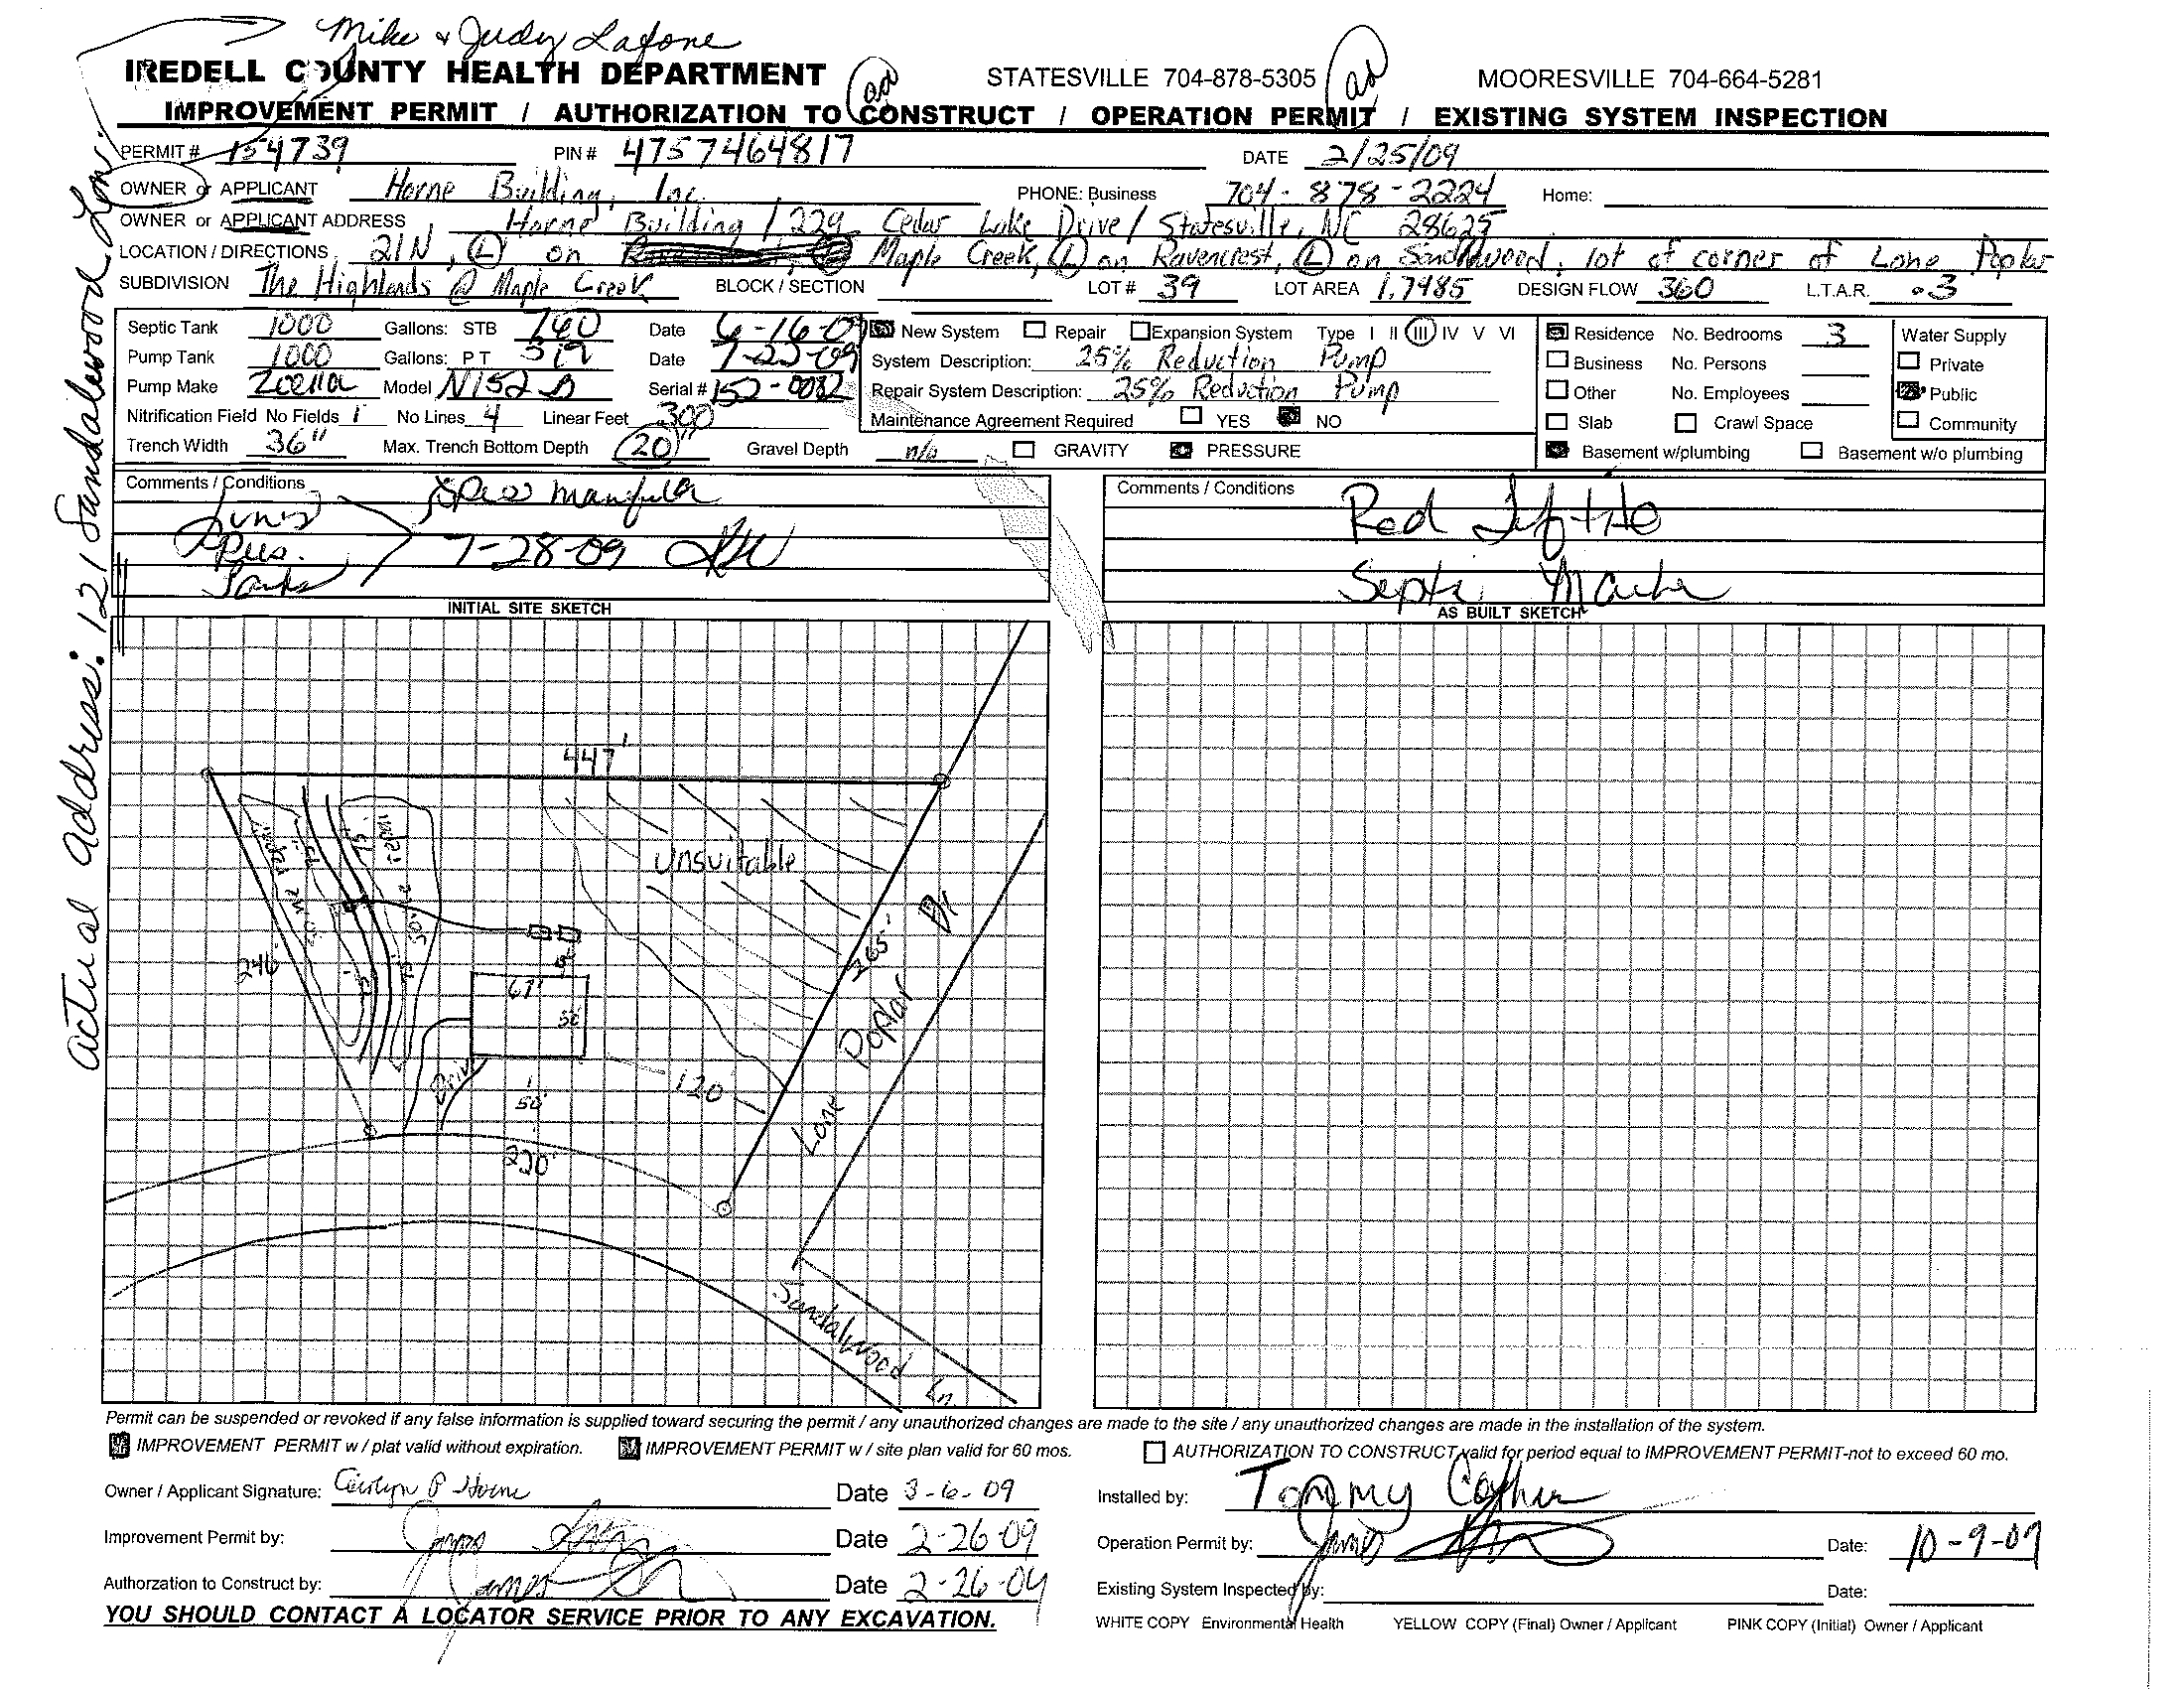 Mike & Judy Lafone
IREDELL COUNTY HEALTH DEPARTMENT STATESVILLE 704-878-5305 MOORESVILLE 704-664-5281
IMPROVEMENT PERMIT / AUTHORIZATION TO CONSTRUCT / OPERATION PERMIT / EXISTING SYSTEM INSPECTION
PERMIT # 154739 PIN # 4757464817 DATE 2/25/09
OWNER or APPLICANT Horne Building, Inc. PHONE: Business 704-878-2224 Home:
OWNER or APPLICANT ADDRESS Horne Building / 229 Cedar Lake Drive / Statesville, NC 28625
LOCATION / DIRECTIONS 21N, L on Maple Creek, L on Ravencrest, L on Sandlewood, lot at corner of Lone Poplar
SUBDIVISION The Highlands @ Maple Creek BLOCK / SECTION LOT # 39 LOT AREA 1.7985 DESIGN FLOW 360 L.T.A.R. .3
Septic Tank 1000 Gallons: STB 760 Date 6-16-09 New System Repair Expansion System Type I II III IV V VI Residence No. Bedrooms 3 Water Supply
Pump Tank 1000 Gallons: PT Date 7-22-09 System Description: 25% Reduction Pump Business No. Persons Private
Pump Make Zoeller Model N152 Serial # 152-0082 Repair System Description: 25% Reduction Pump Other No. Employees Public
Nitrification Field No Fields 1 No Lines 4 Linear Feet 300 Maintenance Agreement Required YES NO Slab Crawl Space Community
Trench Width 36" Max. Trench Bottom Depth 20" Gravel Depth n/a GRAVITY PRESSURE Basement w/plumbing Basement w/o plumbing
Comments / Conditions
Lines
Pres.
Tanks
7-28-09
Comments / Conditions
Red
Septic
INITIAL SITE SKETCH
AS BUILT SKETCH
Actual address: 121 Sandalewood Lane
447'
Unsuitable
246'
67'
50'
265'
Lone Poplar Dr
120'
Drive
50'
220'
Sandalwood Ln.
Permit can be suspended or revoked if any false information is supplied toward securing the permit / any unauthorized changes are made to the site / any unauthorized changes are made in the installation of the system.
IMPROVEMENT PERMIT w / plat valid without expiration. IMPROVEMENT PERMIT w / site plan valid for 60 mos. AUTHORIZATION TO CONSTRUCT valid for period equal to IMPROVEMENT PERMIT-not to exceed 60 mo.
Owner / Applicant Signature: Carolyn P Horne Date 3-6-09 Installed by: Tommy
Improvement Permit by: James Date 2-26-09 Operation Permit by: James Date: 10-9-09
Authorzation to Construct by: James Date 2-26-09 Existing System Inspected by: Date:
YOU SHOULD CONTACT A LOCATOR SERVICE PRIOR TO ANY EXCAVATION. WHITE COPY Environmental Health YELLOW COPY (Final) Owner / Applicant PINK COPY (Initial) Owner / Applicant